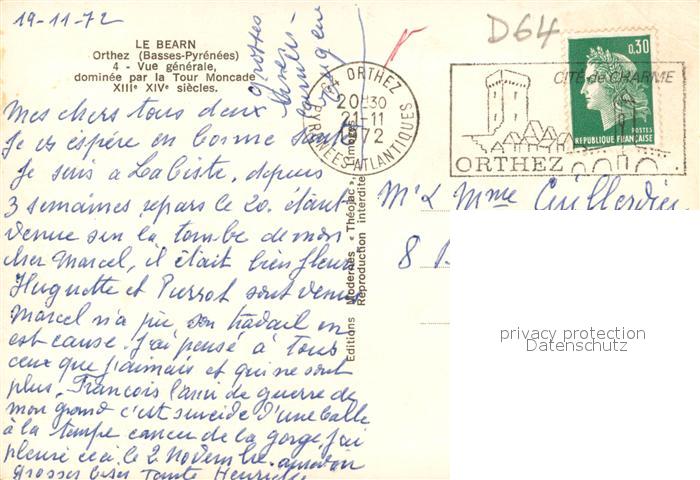 19-11-72
LE BEARN
Orthez (Basses-Pyrénées)
4 - Vue générale,
dominée par la Tour Moncade
XIIIe XIVe siècles.
D64
0,30
POSTES
REPUBLIQUE FRANÇAISE
64 ORTHEZ
20H30
21-11
1972
PYRÉNÉES-ATLANTIQUES
CITÉ de CHARME
ORTHEZ
Mes chers tous deux
Je vs espère en bonne santé
Je suis à Labiste, depuis
3 semaines repars le 20. étant
venue sur la tombe de mon
cher Marcel, il était bien fleuri
Huguette et Pierrot sont venus
Marcel n'a pu son travail en
est cause. J'ai pensé à tous
ceux que j'aimais et qui ne sont
plus. François l'ami de guerre de
mon grand c'est suicidé d'une balle
à la tempe cancer de la gorge j'ai
pleuré ceci le 2 Novembre.
grosses bises Tante Henriette
Editions Modernes « Théojac », Limoges
Reproduction interdite
Mr & Mme
8
privacy protection
Datenschutz